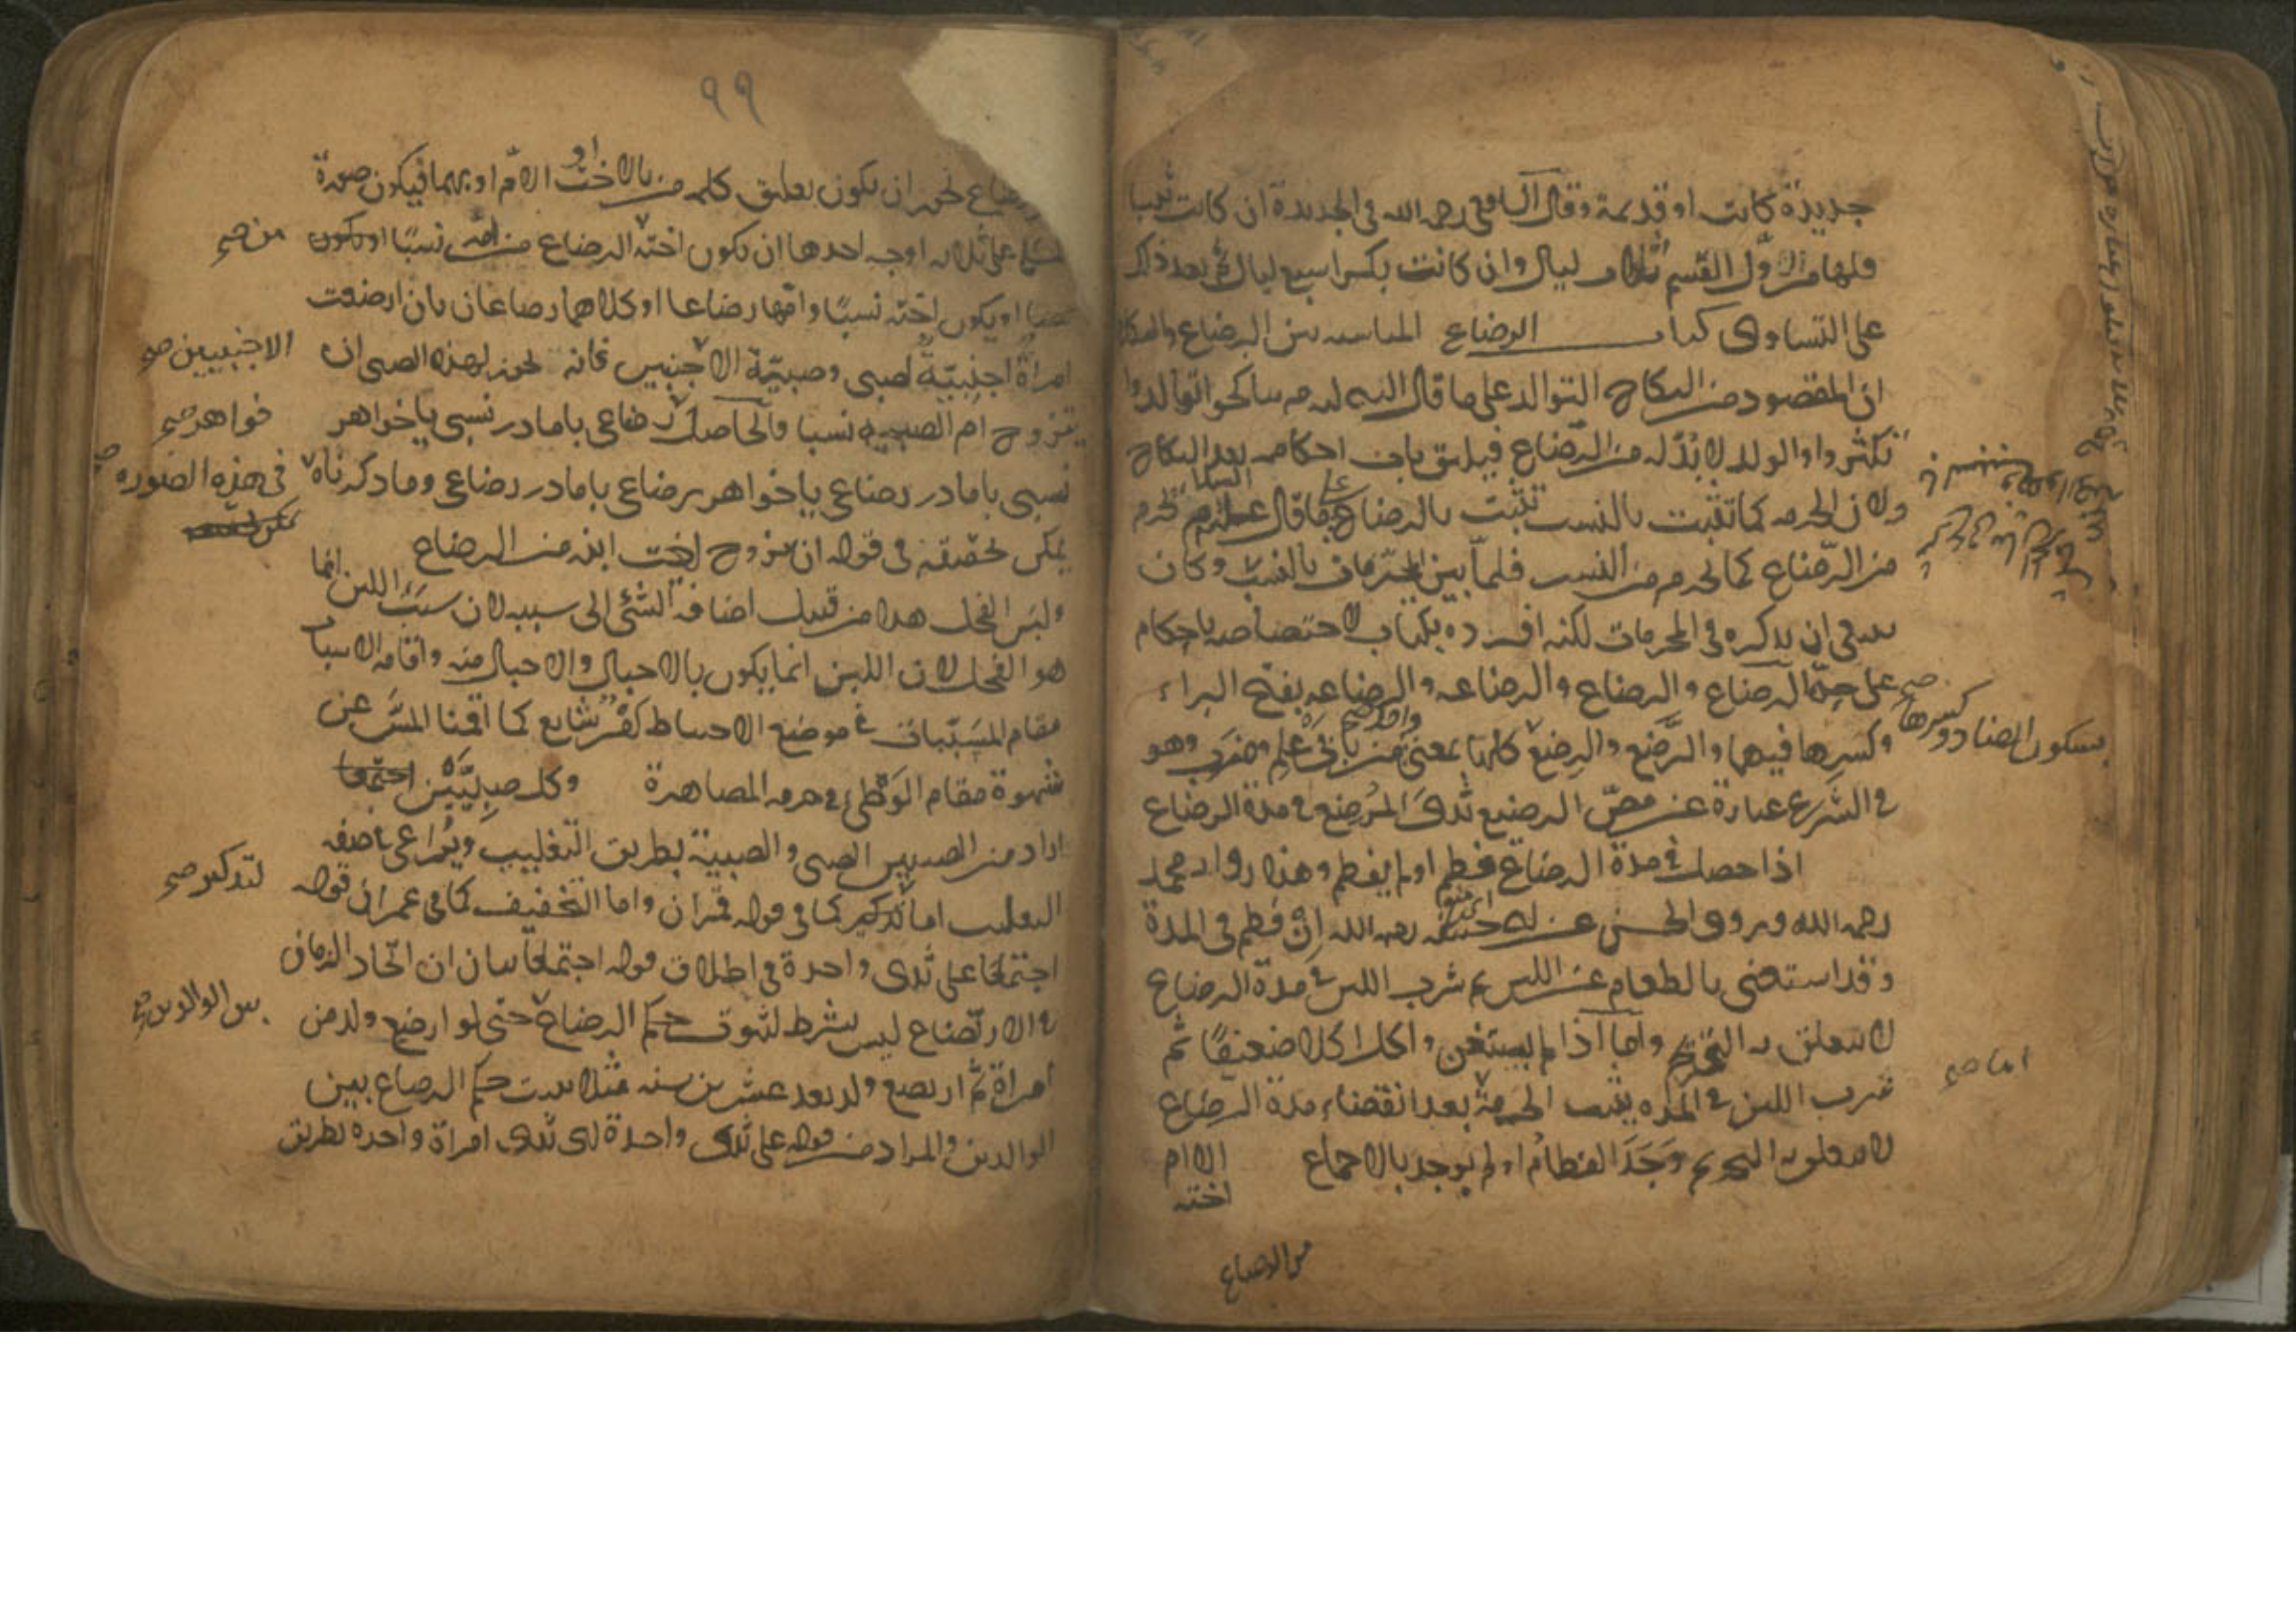 جديدة كانت او قديمة وقال الشافعى رحمه الله فى الجديدة ان كانت ثيبا
فلها من اول القسم ثلاث ليال وان كانت بكرا سبع ليال ثم بعد ذلك
على التساوى كتاب الرضاع المناسبه بين الرضاع والنكاح
ان المقصود من النكاح التوالد على ما قال النبى تناكحوا توالدوا
تكثروا والولد لا بد له من الرضاع فيليق بيان احكامه بعد النكاح
ولان الحرمه كما تثبت بالنسب تثبت بالرضاع على ما قال عليه السلام يحرم
من الرضاع كما يحرم من النسب فلما بين المحرمات بالنسب وكان
ينبغى ان يذكره فى المحرمات لكنه افرده بكتاب لاختصاصه باحكام
على حدة الرضاع والرضاع والرضاعه والرضاعه بفتح الراء
وكسرها فيهما والرضع والرضع كلها بمعنى واحد من بابى علم وضرب وهو
بسكون الضاد وكسرها صح
فى الشرع عبارة عن مص الرضيع ثدى المرضع فى مدة الرضاع
اذا حصل فى مدة الرضاع فطم او لم يفطم وهذا رواية محمد
رحمه الله وروى الحسن عن ابى حنيفه رحمه الله ان فطم فى المدة
وقد استغنى بالطعام عن اللبن ثم شرب اللبن فى مدة الرضاع
لا يتعلق به التحريم واما اذا لم يستغن واكل اكلا ضعيفا ثم
شرب اللبن فى المده يثبت الحرمة بعد انقضاء مدة الرضاع
اما صح
لا يتعلق به التحريم وجد الفطام او لم يوجد بالاجماع الا ام
اخته
من الرضاع
٩٩
الرضاع يجوز ان يكون يعلق كلمه من بالاخت او الام او بهما فيكون صورة
على ثلاثه اوجه احدها ان يكون اخته الرضاع من امه نسبا او يكون
من صح
نسبا او يكون اخته نسبا وامها رضاعا او كلاهما رضاعان بان ارضعت
امراة اجنبية لصبى وصبية الاجنبيين فانه يجوز لهذا الصبى ان
الاجنبيين صح
يتزوج ام الصبيه نسبا والحاصل رضاعى با مادر نسبى يا خواهر
خواهر صح
نسبى با مادر رضاعى يا خواهر رضاعى با مادر رضاعى وما ذكرناه
فى هذه الصوره صح
يمكن تحقيقه فى قوله ان يتزوج اخت ابنه من الرضاع
ولبن الفحل هذا من قبيل اضافة الشئ الى سببه لان سبب اللبن انما
هو الفحل لان اللبن انما يكون بالاحبال والاحبال منه واقامه الاسباب
مقام المسببات فى موضع الاحتياط شايع كما اقمنا المس عن
شهوة مقام الوطى فى حرمه المصاهرة وكل صبيين اجتمعا
اراد من الصبيين الصبى والصبية بطريق التغليب ويراعى صفه
التغليب اما تذكير كما فى قوله قمران واما التخفيف كما فى عمران قوله
لتذكير صح
اجتمعا على ثدى واحدة فى اطلاق قوله اجتمعا بيان ان اتحاد الزمان
فى الارتضاع ليس بشرط لثبوت حكم الرضاع حتى لو ارضع ولد من
بين الوالدين صح
امراة ثم ارتضع ولد بعد عشرين سنه مثلا يثبت حكم الرضاع بين
الوالدين والمراد من قوله على ثدى واحدة اى ثدى امراة واحده بطريق